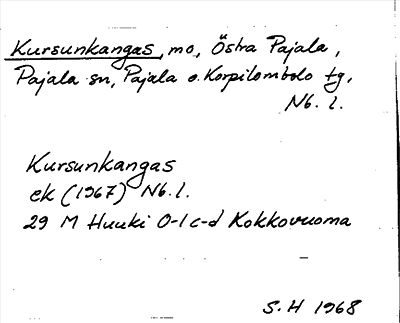 Kursunkangas, mo, Östra Pajala,
Pajala sn, Pajala o. Korpilombolo tg,
Nb. l.
Kursunkangas
ek (1967) Nb. l.
29 M Huuki 0-1 c-d Kokkovuoma
S. H 1968